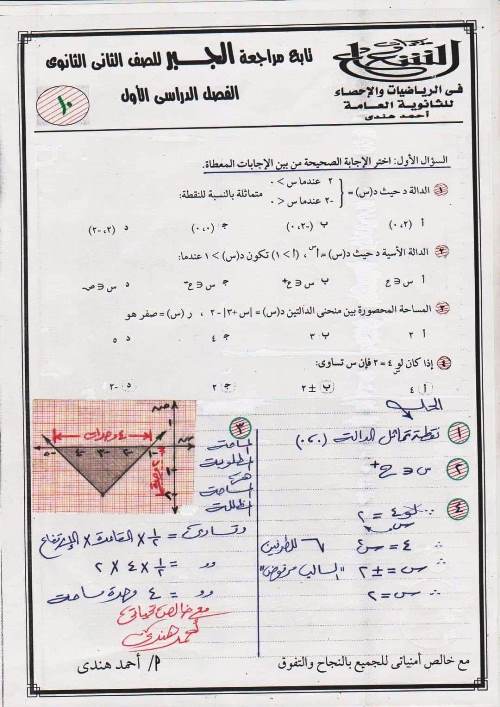 تابع مراجعة الجبر للصف الثانى الثانوى
الفصل الدراسى الأول
١٠
فى الرياضيات والإحصاء
للثانوية العامة
أحمد هندى
السؤال الأول: اختر الإجابة الصحيحة من بين الإجابات المعطاة.
١ الدالة د حيث د(س) = { ٢ عندما س > ٠
-٢ عندما س < ٠ متماثلة بالنسبة للنقطة:
أ (٢،٠) ب (-٢،٠) ج (٠،٠) د (٢،-٢)
٢ الدالة الأسية د حيث د(س) = أس ، (أ > ١) تكون د(س) > ١ عندما:
أ س ∈ ع ب س ∈ ع+ ج س ∈ ع- د س ∈ ص
٣ المساحة المحصورة بين منحنى الدالتين د(س) = |س + ٣| - ٢ ، ر(س) = صفر هو
أ ٢ ب ٣ ج ٤ د ٥
٤ إذا كان لوس ٤ = ٢ فإن س تساوى:
أ ٤ ب ± ٢ ج ٢ د -٢
الحل
١ نقطة تماثل الدالة (٠،٠)
٢ س ∈ ع+
٤ ∵ لوس ٤ = ٢
∴ ٤ = س٢ √ للطرفين
∴ س = ± ٢ "السالب مرفوض"
∴ س = ٢
٣ المساحة
المطلوبة
هى
مساحة
المثلث
ص
س
٤ وحدات
-٥ -٣ -١
-١
-٢
وتساوى = ١/٢ × القاعدة × الإرتفاع
= ١/٢ × ٤ × ٢
= ٤ وحدة مساحة
مع خالص تحياتى
أحمد هندى
مع خالص أمنياتى للجميع بالنجاح والتفوق
أ/ أحمد هندى